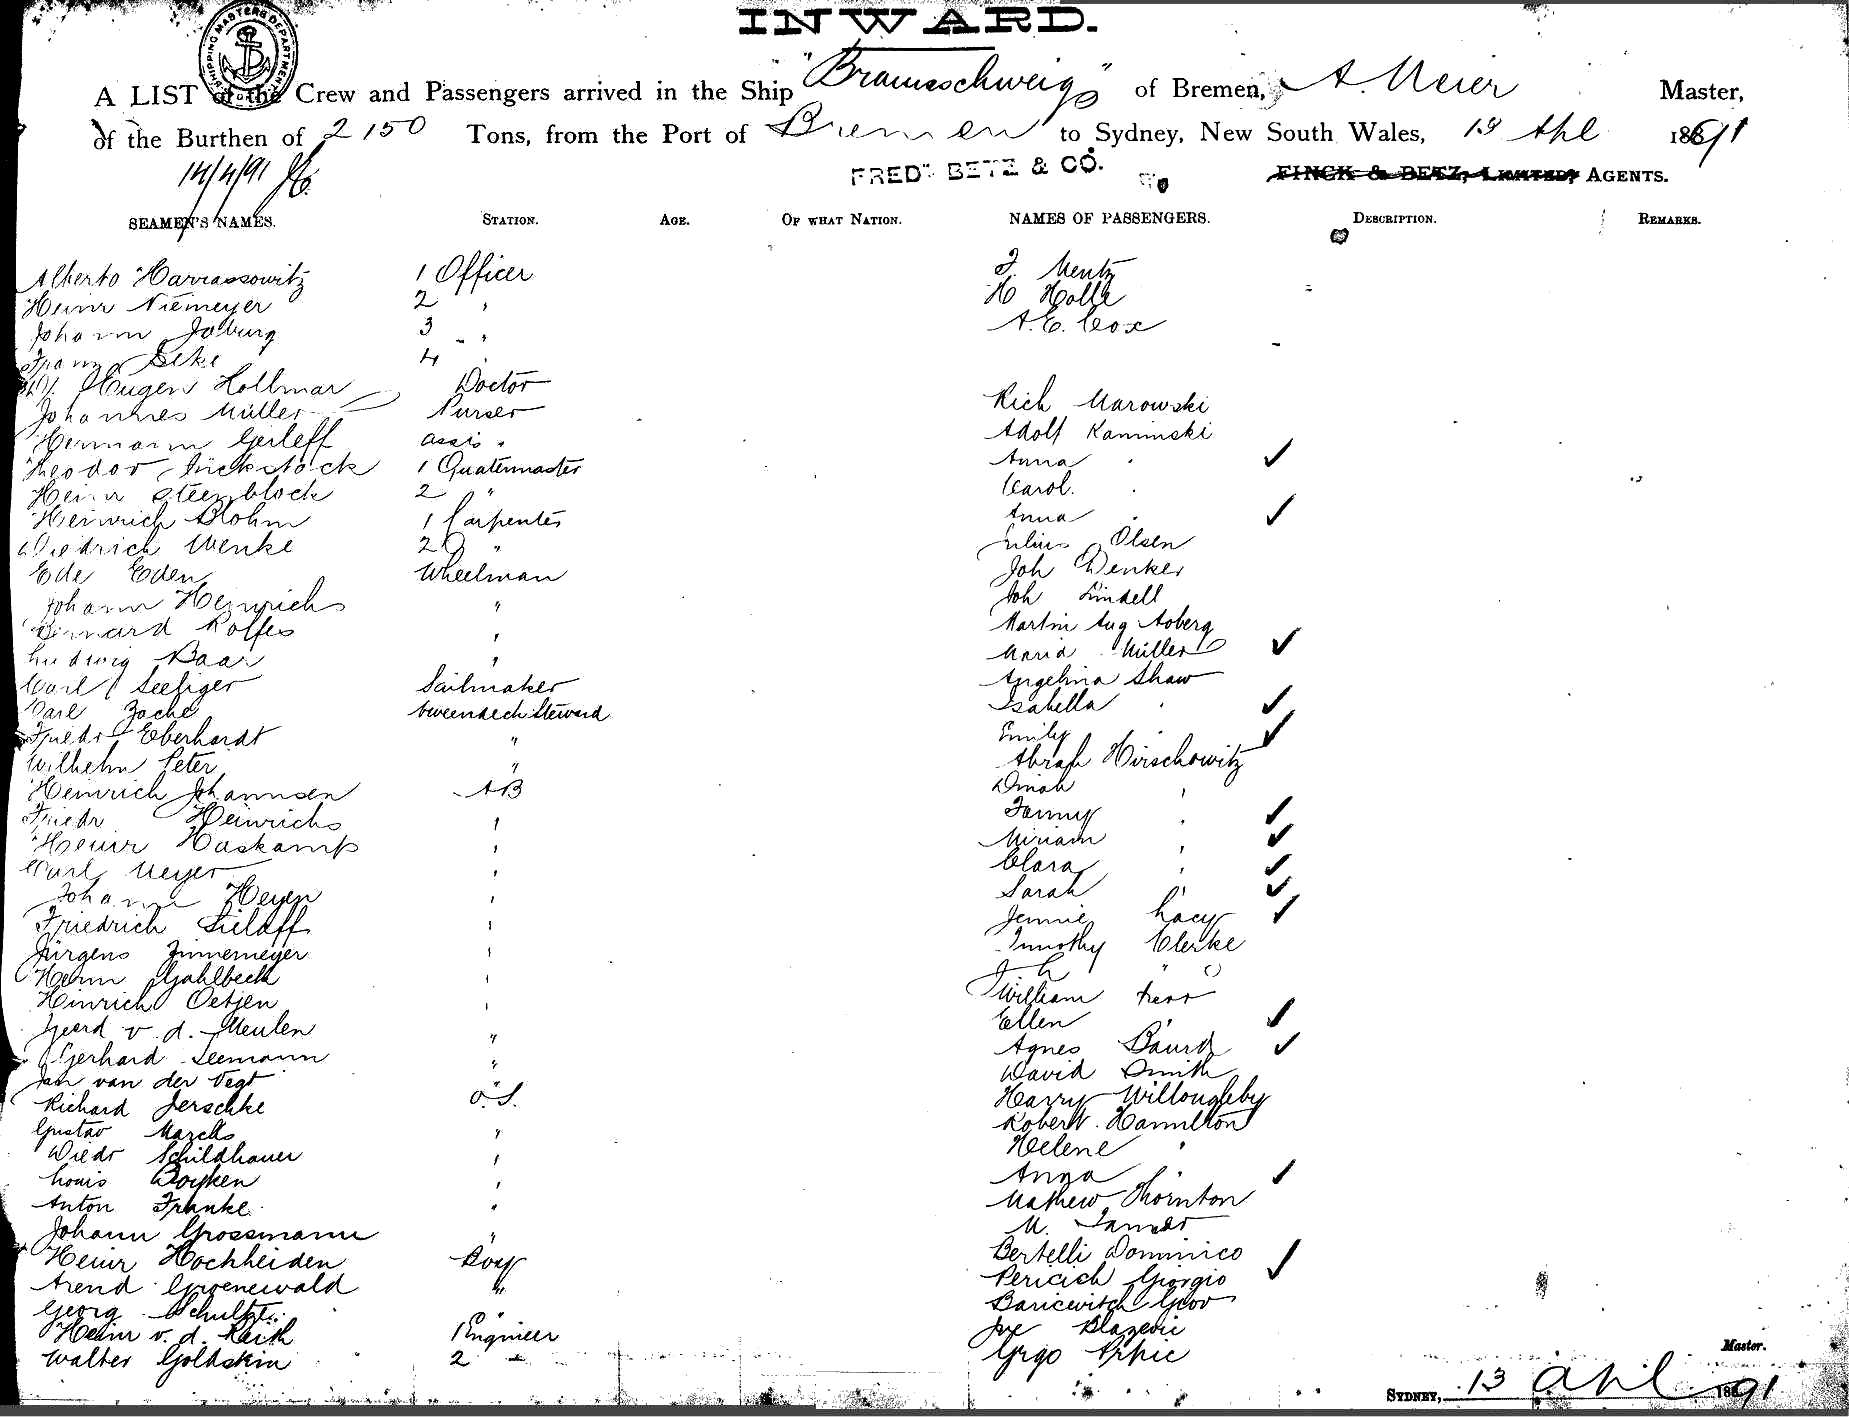 INWARD.
SHIPPING MASTERS DEPARTMENT
A LIST of the Crew and Passengers arrived in the Ship "Braunschweig" of Bremen, A. Meier Master,
of the Burthen of 2150 Tons, from the Port of Bremen to Sydney, New South Wales, 13 Apl 1891
14/4/91
FREDK BETZ & CO. FINCK & BETZ, LIMITED, AGENTS.
SEAMEN'S NAMES. STATION. AGE. OF WHAT NATION. NAMES OF PASSENGERS. DESCRIPTION. REMARKS.
Alberto Harrassowitz 1 Officer F. Mentz
Heinr Niemeyer 2 " H Holle
Johann Joburg 3 " A. E. Cox
Franz 4 "
Dr. Eugen Hollmar Doctor
Johannes Müller Purser Rich Marowski
Hermann Gerleff assis " Adolf Kaminski
Theodor Lückstäck 1 Quatermaster Anna " ✓
Heinr Steenblock 2 " Carol. "
Heinrich Blohm 1 Carpenter Anna " ✓
Diedrich Wenke 2 " Julius Olsen
Ede Eden Wheelman Joh Denker
Johann Heinrichs " Joh Lindell
Bernard Rolfes " Martin Aug Aoberg
Ludwig Baar " Maria Müller ✓
Carl Seeliger Sailmaker Angelina Shaw
Carl Zoche tweendeck Steward Isabella " ✓
Friedr Eberhardt " Emily " ✓
Wilhelm Peter " Abrah Hirschowitz
Heinrich Johannsen AB Dinah "
Friedr Heinrichs " Fanny " ✓
Heinr Haskamp " Miriam " ✓
Carl Meyer " Clara " ✓
Johann Heyen " Sarah " ✓
Friedrich Sielaff " Jennie Lacy ✓
Jürgens Zinnemeyer " Timothy Clerke
Herm Gahlbeck " "
Hinrich Oetjen " William
Geerd v. d. Meulen " Ellen " ✓
Gerhard Seemann " Agnes Baird ✓
Jan van der Vegt " David Smith
Richard Jerschke O.S. Harry Willoughby
Gustav Marcks " Robert Hamilton
Diedr Schildhauer " Helene "
Louis Boyken " Anna " ✓
Anton Franke " Mathew Thornton
Johann Grossmann " M.
Heinr Hochheiden Boy Bertelli Dominico
Arend Groenewald " Pericich Giorgio ✓
Georg Schultze " Baricewitch Giov
Heinr v. d. Reith 1 Engineer Joe Blazevic
Walter Goldstein 2 " Grgo Arkic
Master.
SYDNEY, 13 Apl 1891